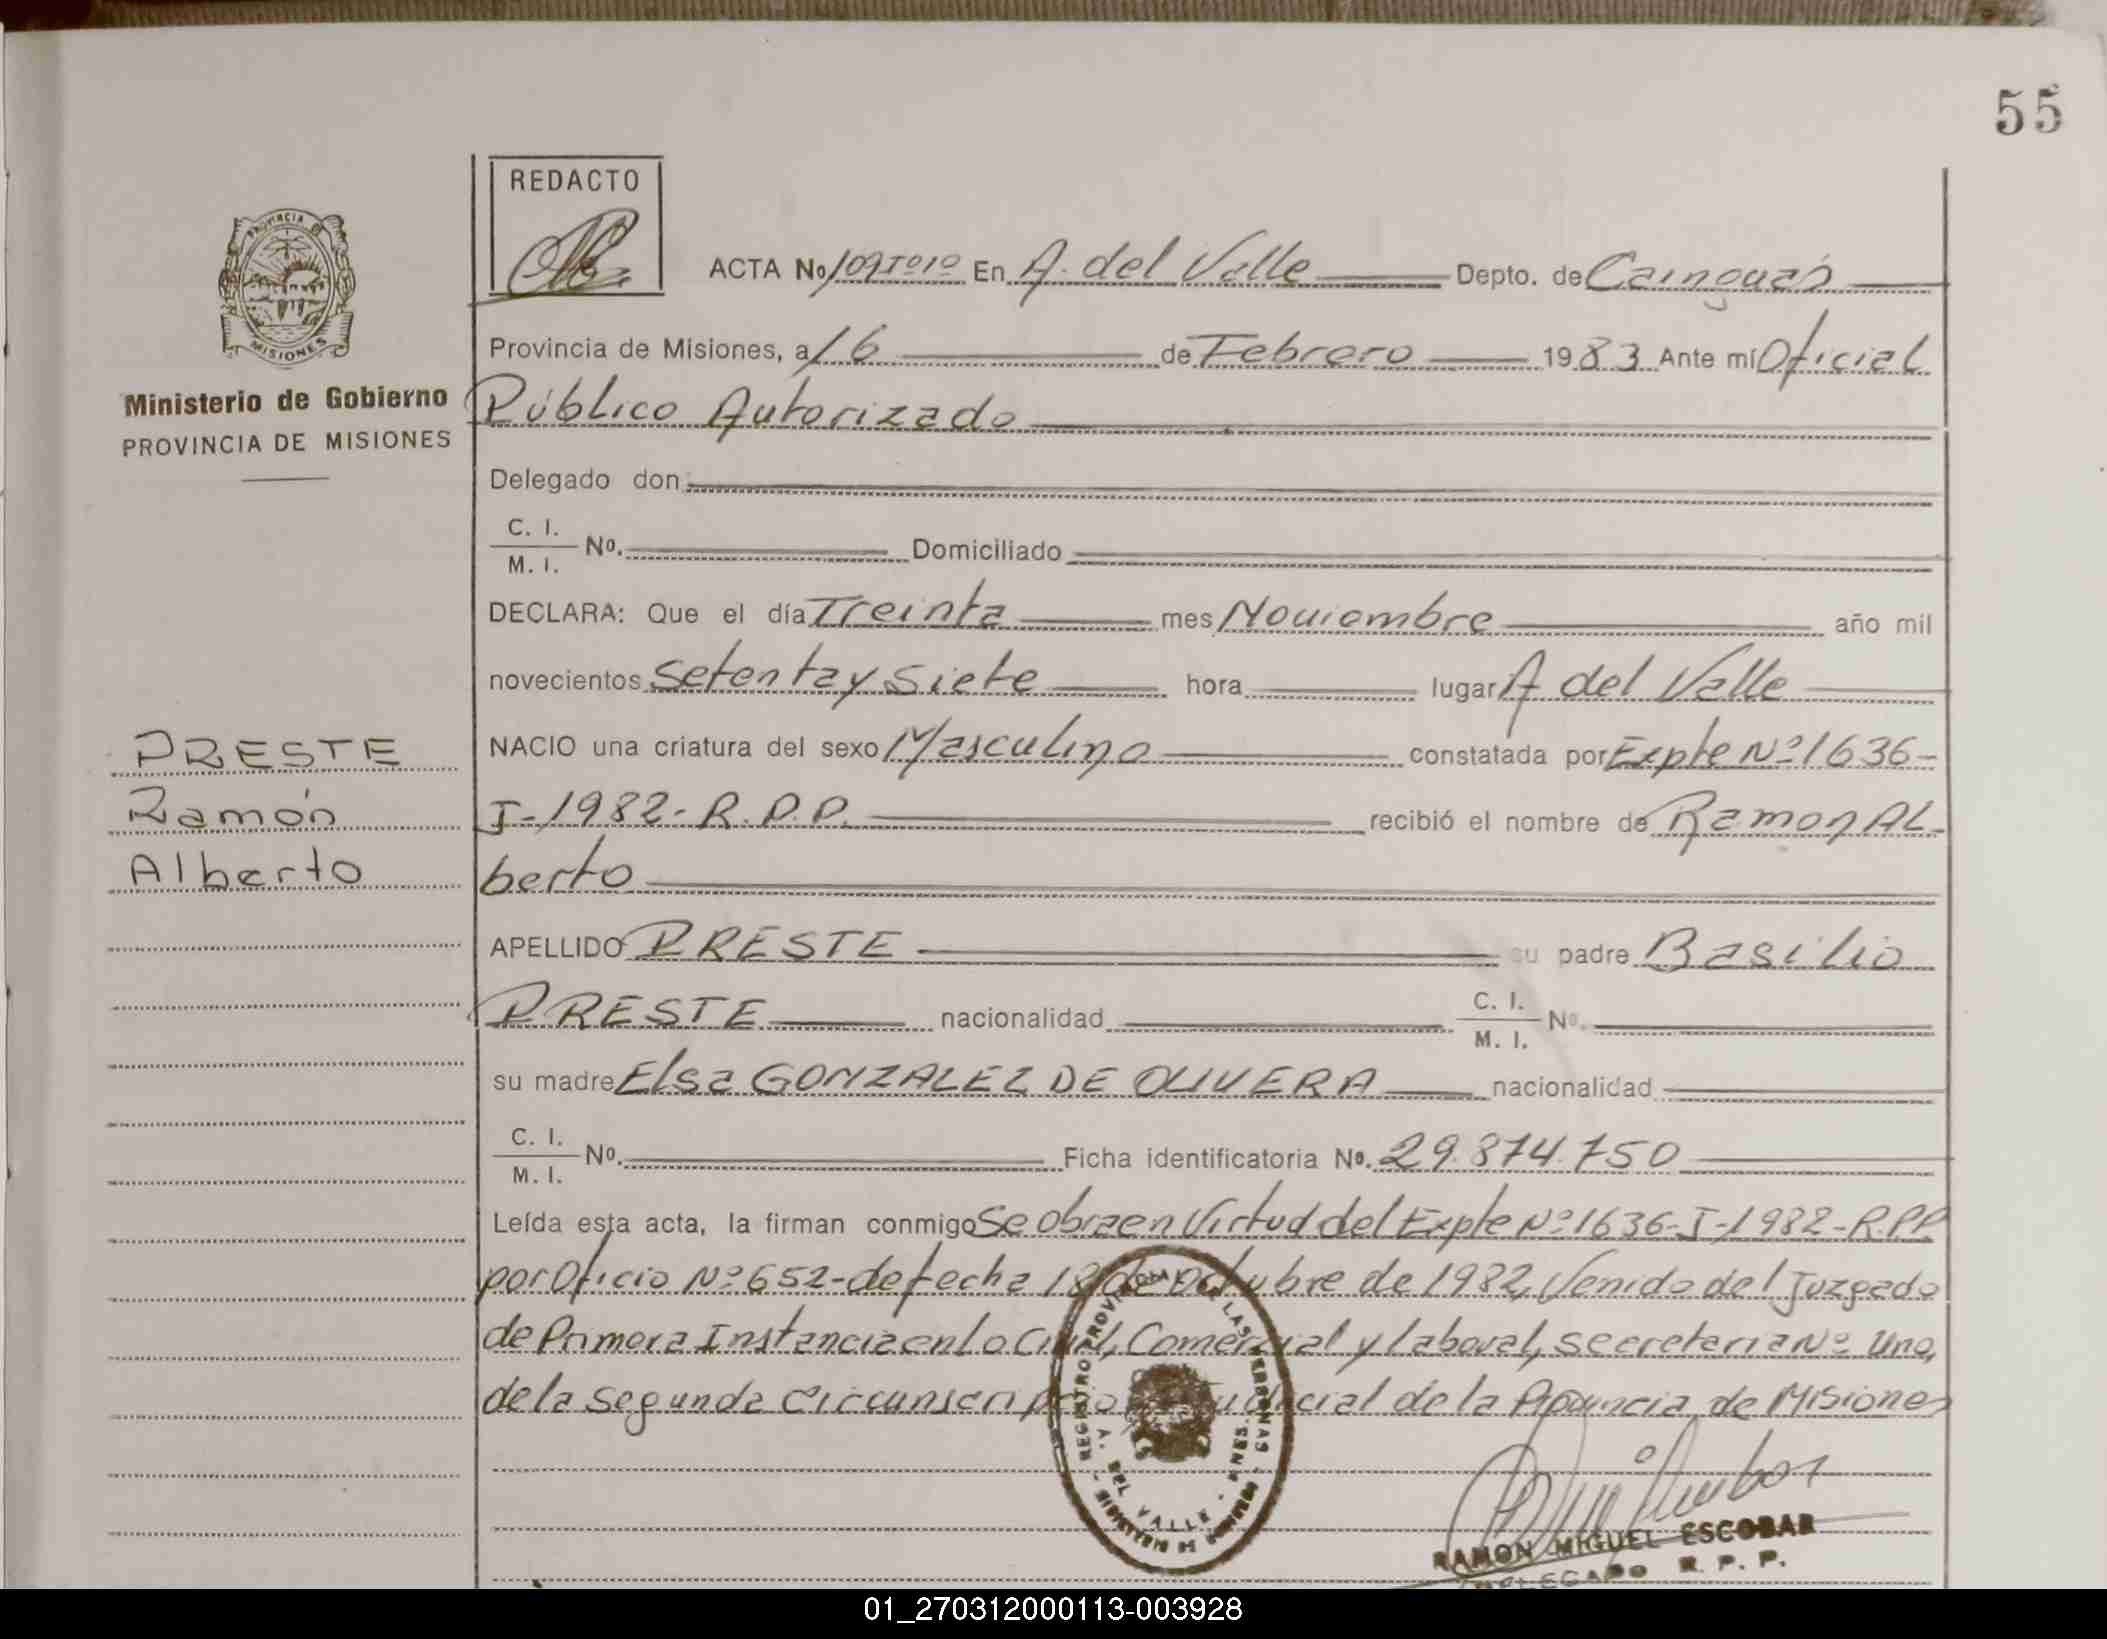 55
REDACTO
ACTA No 109Tº1º En A. del Valle Depto. de Cainguás
PROVINCIA DE MISIONES
Provincia de Misiones, a 16 de Febrero 1983 Ante mí Oficial
Ministerio de Gobierno
PROVINCIA DE MISIONES
Público Autorizado
Delegado don
C. I.
M. I. Nº. Domiciliado
DECLARA: Que el día Treinta mes Noviembre año mil
novecientos Setenta y Siete hora lugar A del Valle
NACIO una criatura del sexo Masculino constatada por Expte Nº 1636-
J-1982-R.P.P. recibió el nombre de Ramon Al-
berto
PRESTE
Ramón
Alberto
APELLIDO PRESTE su padre Basilio
PRESTE nacionalidad C. I. M. I. Nº.
su madre Elsa GONZALEZ DE OLIVERA nacionalidad
C. I.
M. I. Nº. Ficha identificatoria Nº. 29.874.750
Leída esta acta, la firman conmigo Se obra en Virtud del Expte Nº 1636-J-1982-R.P.P.
por Oficio Nº 652-de fecha 18 de octubre de 1982, Venido del Juzgado
de Primera Instancia en lo Civil, Comercial y laboral, secretaria Nº Uno,
de la segunda circunscripción Judicial de la Provincia de Misiones
REGISTRO PROVINCIAL DE LAS PERSONAS - MISIONES
A. DEL VALLE
RAMON MIGUEL ESCOBAR
DELEGADO R. P. P.
01_270312000113-003928